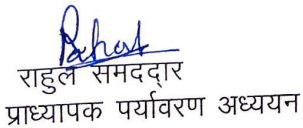 राहुल समददार
प्राध्यापक पर्यावरण अध्ययन